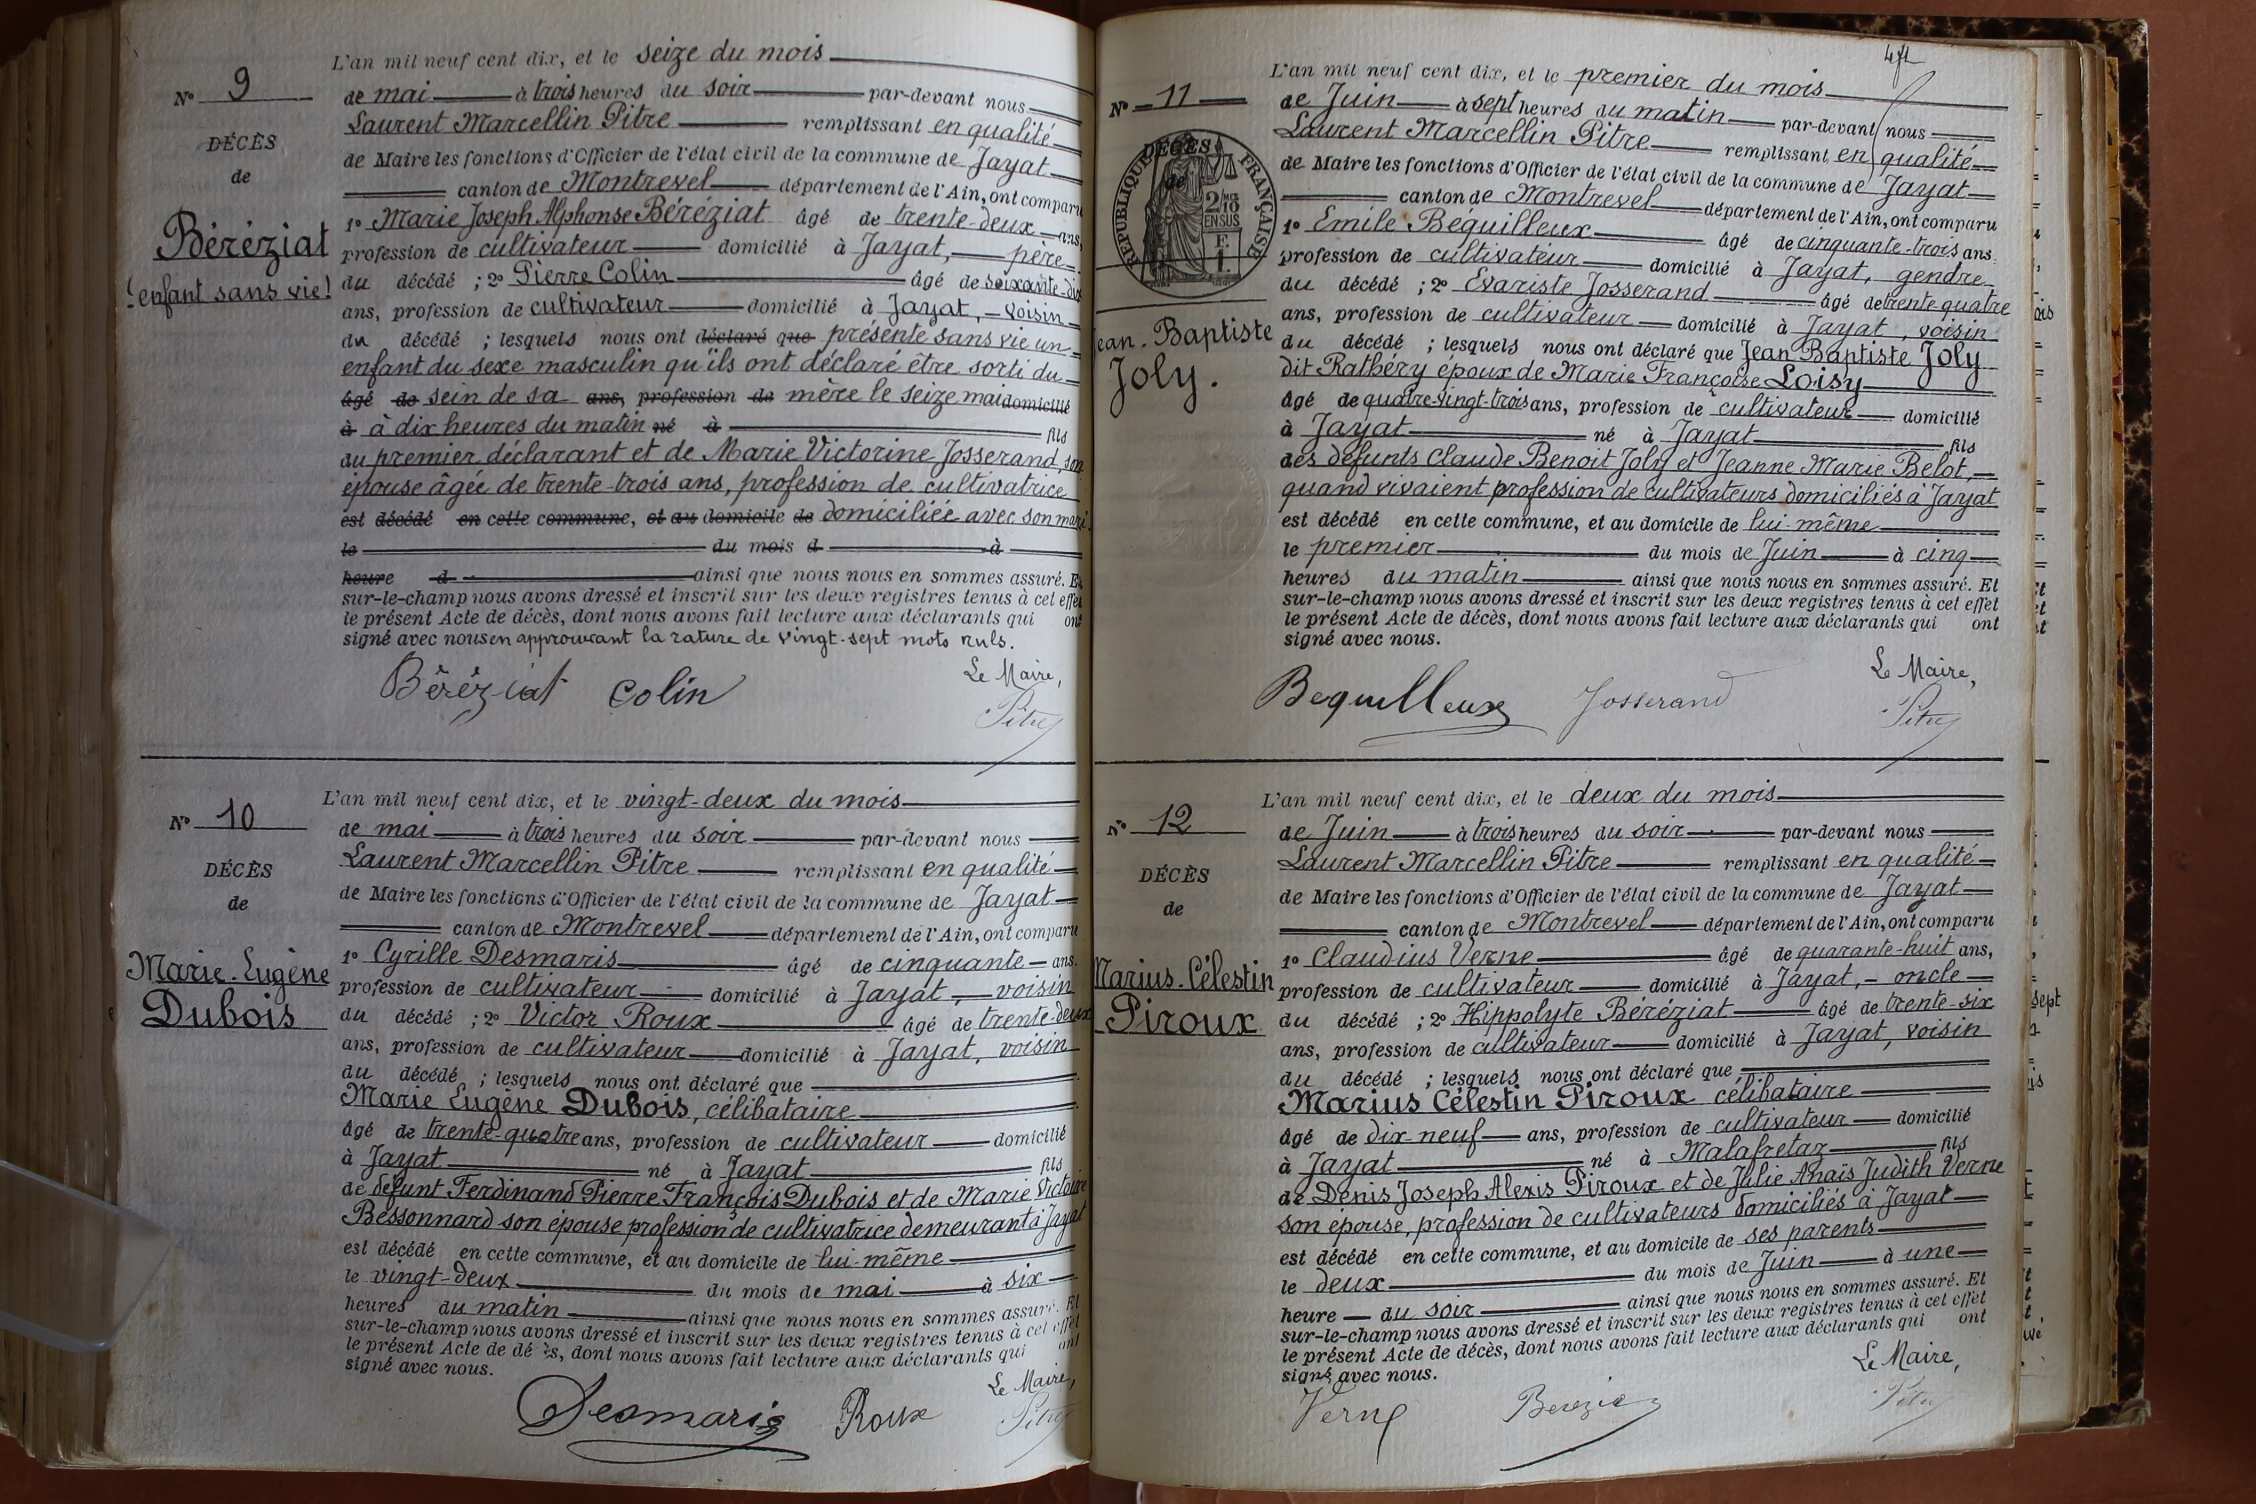 N° 9
DÉCÈS
de
Béréziat
(enfant sans vie)
L'an mil neuf cent dix, et le seize du mois
de mai à trois heures du soir par-devant nous
Laurent Marcellin Pitre remplissant en qualité
de Maire les fonctions d'Officier de l'état civil de la commune de Jayat
canton de Montrevel département de l'Ain, ont comparu
1° Marie Joseph Alphonse Béréziat âgé de trente-deux ans,
profession de cultivateur domicilié à Jayat, père
du décédé ; 2° Pierre Colin âgé de soixante-dix
ans, profession de cultivateur domicilié à Jayat, voisin
du décédé ; lesquels nous ont déclaré que présenté sans vie un
enfant du sexe masculin qu'ils ont déclaré être sorti du
âgé de sein de sa ans, profession de mère le seize mai domicilié
à à dix heures du matin né à fils
du premier déclarant et de Marie Victorine Josserand, son
épouse âgée de trente-trois ans, profession de cultivatrice
est décédé en cette commune, et au domicile de domiciliée avec son mari.
le du mois d à
heure d ainsi que nous nous en sommes assuré. Et
sur-le-champ nous avons dressé et inscrit sur les deux registres tenus à cet effet
le présent Acte de décès, dont nous avons fait lecture aux déclarants qui ont
signé avec nous en approuvant la rature de vingt-sept mots nuls.
Le Maire,
Béréziat Colin Pitre
N° 10
DÉCÈS
de
Marie-Eugène
Dubois
L'an mil neuf cent dix, et le vingt-deux du mois
de mai à trois heures du soir par-devant nous
Laurent Marcellin Pitre remplissant en qualité
de Maire les fonctions d'Officier de l'état civil de la commune de Jayat
canton de Montrevel département de l'Ain, ont comparu
1° Cyrille Desmaris âgé de cinquante ans.
profession de cultivateur domicilié à Jayat, voisin
du décédé ; 2° Victor Roux âgé de trente-deux
ans, profession de cultivateur domicilié à Jayat, voisin
du décédé ; lesquels nous ont déclaré que
Marie Eugène Dubois, célibataire
âgé de trente-quatre ans, profession de cultivateur domicilié
à Jayat né à Jayat fils
de défunt Ferdinand Pierre François Dubois et de Marie Victoire
Bessonnard son épouse profession de cultivatrice demeurant à Jayat
est décédé en cette commune, et au domicile de lui-même
le vingt-deux du mois de mai à six
heures du matin ainsi que nous nous en sommes assuré. Et
sur-le-champ nous avons dressé et inscrit sur les deux registres tenus à cet effet
le présent Acte de décès, dont nous avons fait lecture aux déclarants qui ont
signé avec nous.
Le Maire,
Desmaris Roux Pitre
N° 11
DÉCÈS
de
RÉPUBLIQUE FRANÇAISE
2/10
EN SUS
Jean-Baptiste
Joly.
L'an mil neuf cent dix, et le premier du mois
de Juin à sept heures du matin par-devant nous
Laurent Marcellin Pitre remplissant en qualité
de Maire les fonctions d'Officier de l'état civil de la commune de Jayat
canton de Montrevel département de l'Ain, ont comparu
1° Emile Béquilleux âgé de cinquante-trois ans.
profession de cultivateur domicilié à Jayat, gendre
du décédé ; 2° Evariste Josserand âgé de trente-quatre
ans, profession de cultivateur domicilié à Jayat, voisin
du décédé ; lesquels nous ont déclaré que Jean Baptiste Joly
dit Rathéry époux de Marie Françoise Loisy
âgé de quatre-vingt-trois ans, profession de cultivateur domicilié
à Jayat né à Jayat fils
des défunts Claude Benoit Joly et Jeanne Marie Belot,
quand vivaient profession de cultivateurs domiciliés à Jayat
est décédé en cette commune, et au domicile de lui-même
le premier du mois de Juin à cinq
heures du matin ainsi que nous nous en sommes assuré. Et
sur-le-champ nous avons dressé et inscrit sur les deux registres tenus à cet effet
le présent Acte de décès, dont nous avons fait lecture aux déclarants qui ont
signé avec nous.
Le Maire,
Bequilleux Josserand Pitre
N° 12
DÉCÈS
de
Marius-Célestin
Piroux
L'an mil neuf cent dix, et le deux du mois
de Juin à trois heures du soir par-devant nous
Laurent Marcellin Pitre remplissant en qualité
de Maire les fonctions d'Officier de l'état civil de la commune de Jayat
canton de Montrevel département de l'Ain, ont comparu
1° Claudius Verne âgé de quarante-huit ans,
profession de cultivateur domicilié à Jayat, oncle
du décédé ; 2° Hippolyte Béréziat âgé de trente-six
ans, profession de cultivateur domicilié à Jayat, voisin
du décédé ; lesquels nous ont déclaré que
Marius Célestin Piroux célibataire
âgé de dix-neuf ans, profession de cultivateur domicilié
à Jayat né à Malafretaz fils
de Denis Joseph Alexis Piroux et de Julie Anaïs Judith Verne
son épouse, profession de cultivateurs domiciliés à Jayat
est décédé en cette commune, et au domicile de ses parents
le deux du mois de Juin à une
heure du soir ainsi que nous nous en sommes assuré. Et
sur-le-champ nous avons dressé et inscrit sur les deux registres tenus à cet effet
le présent Acte de décès, dont nous avons fait lecture aux déclarants qui ont
signé avec nous.
Le Maire,
Verne Pitre